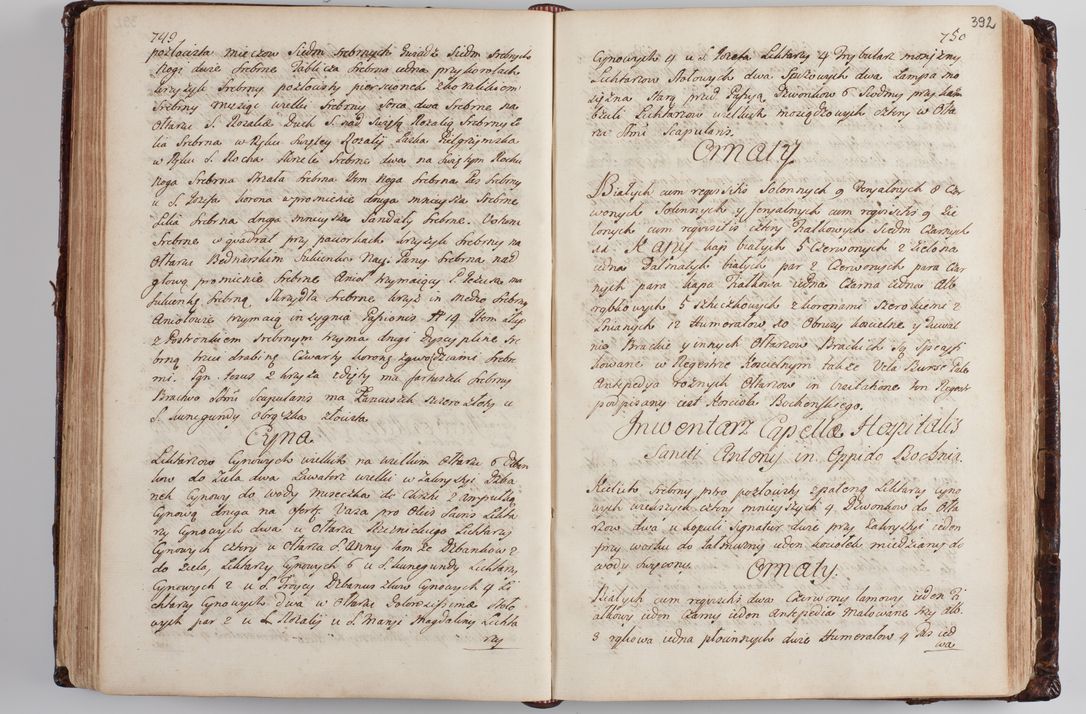 749
pozłocista mieczow Siedm Srebrnych Siedm Srebrnych
Rogi duże Srebrne Tablicza Srebrna iedna przy koroſach
krzyżyk Srebrny pozłocisty pierscionek z koralikiem
Srebrny wielki Srebrny Serca dwa Srebrne na
Ołtarzu S. Rozalij Duch S. nad Swiętą Rozalią Srebrny
lia Srebrna w Ręku Swiętey Rozalij Laska Pielgrzymska
w Ręku S. Rocha Srebrne dwa na Swiętym Rochu
Noga Srebrna Strzała Srebrna Item Noga Srebrna Pies Srebrny
u S. Jozefa korona z promieniem druga mnieysza Srebrne
Lilia Srebrna druga mnieysza Sandały Srebrne.
Srebrne w quadrat przy paciorkach krzyżyk Srebrny na
Ołtarzu Bednarskim Sukienka Nays. Panny Srebrna nad
głową promienie Srebrne Anioł trzymaiący P. Jezusa ma
Sukienkę Srebrną Skrzydła Srebrne krzyż in medio Srebrny
Aniołowie trzymaią insygnia Passionis # 14 Item słup
z Postronkiem Srebrnym trzyma drugi Dyscyplinę Sre
brną trzeci drabinę Czwarty koronę z gwoździami Srebr
mi. Pan Jezus z krzyża zdięty ma fartuszek Srebrny
Bractwo Smi Scapularis ma Łancuszek szczerozłoty u
S. Kunegundy obrączka złocista
Cyna
Lichtarzow Cynowych wielkich na wielkim Ołtarzu 6 Dzban
kow do Ziela dwa Lawatarz wielki w Zakrystyi Dzba
nek Cynowy do wody Miseczka do Chustek 2 Ampułką
Cynową druga na ofert. Vaza pro Oleis Sacris Lichta
rzy Cynowych dwa u Ołtarza Rzeznickiego Lichtarzy
Cynowych cztery u Ołtarza S. Anny tamże Dzbankow 2
do Ziela, Lichtarzy Cynowych 6 u S. Kunegundy Lichtarzy
Cynowych 2 u S Troycy Dzbanuszkow Cynowych 4 Li
chtarzy Cynowych dwa w Ołtarzu Dolorosissimæ Stoło
wych par 2 u S. Rozalij u S Maryi Magdaleny Lichta
rzy
392
750
Cynowych 4 u S. Jozefa Lichtarzy 4 Trybularz mosiężny
Lichtarzow Stołowych dwa Spiżowych dwa Lampa mo
siężna Stara przed Passyą Dzwonkow 6 Siodmy przy kam
bzuli Lichtarzow wielkich mosiądzowych cztery w Ołta
rzu Smi Scapularis.
Ornaty
Białych cum requisitis Solennych 9 Feryalnych 8 Cze
rwonych Solennych y feryalnych cum requisitis 9 Zie
lonych cum requisitis cztery Fiałkowych Siedm Czarnych
11. Kapy kap białych 5 Czerwonych 2 Zielona
iedna Dalmatyk białych par 2 Czerwonych para Czar
nych para kapa Fiałkowa iedna Czarna iedna Alb
rąbkowych 5 Szlczczkowych z koronami Szerokiemi 2
Lnianych 12 Humerałow 20 Obrusy koscielne y
nic Brackie y innych Ołtarzow Brackich Są Specyfi
kowane w Regestrze koscielnym także Vela Bursæ Pallæ
Antepedya roznych Ołtarzow in quo ten Regestr
podpisany iest Kosciołu Bochenskiego.
Inwentarz Capellæ Hospitalis
Sancti Antonij in Oppido Bochnia.
Kielich Srebrny intro pozłocisty z pateną Lichtarzy cyno
wych większych cztery mnieyszych 4. Dzwonkow do Ołta
rzow dwa u kopuli Signatur duże przy Zakrystyi ieden
przy worku do Jałmużny ieden kociołek miedziany do
wody swięconey.
Ornaty.
Białych cum requisitis dwa Czerwony lamowy ieden Fi
ałkowy ieden Czarny ieden Antepedia Malowane trzy Alb.
3 rąbkowa iedna płociennych duże Humerałow 4 Pas ied
wa